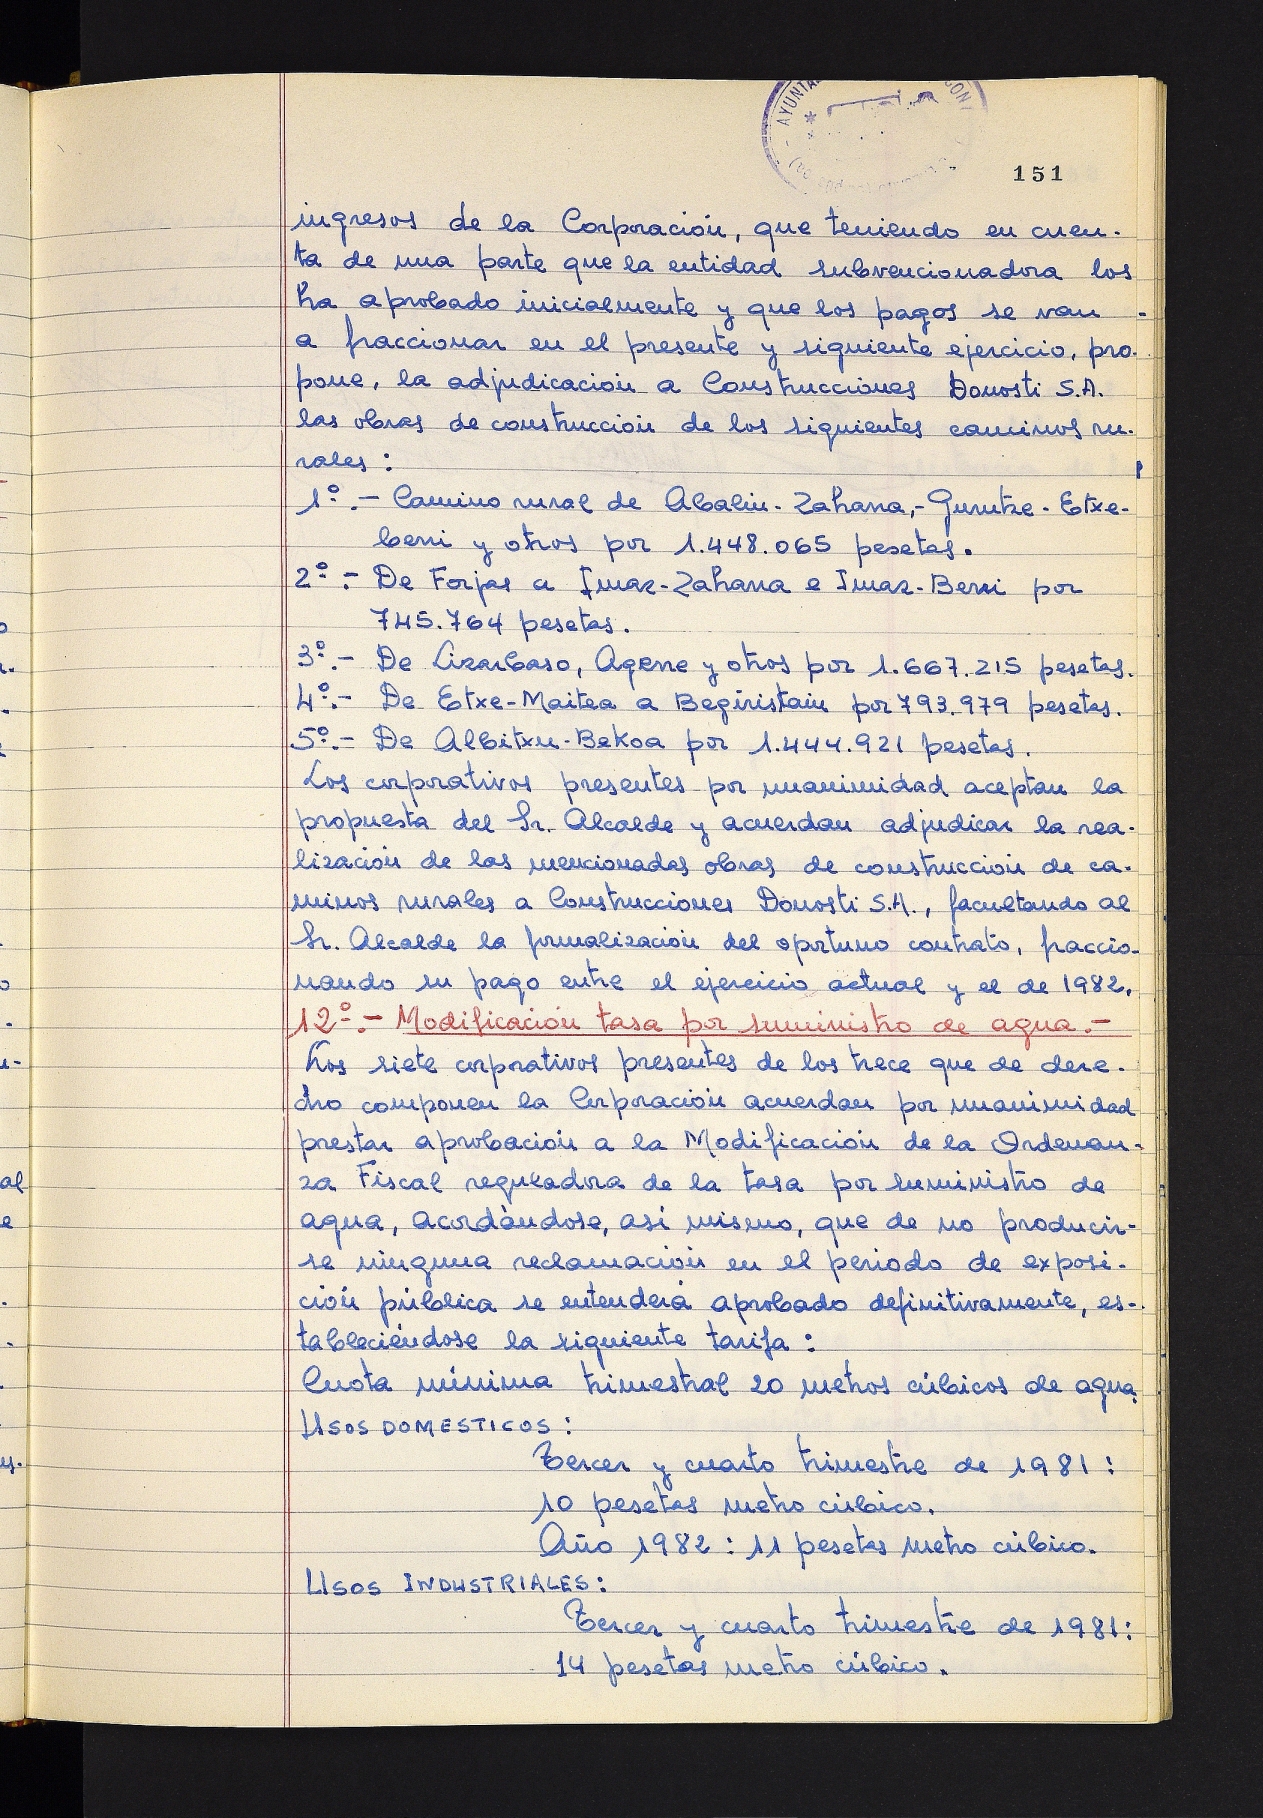 151
ingresos de la Corporación, que teniendo en cuen-
ta de una parte que la entidad subvencionadora los
ha aprobado inicialmente y que los pagos se van
a fraccionar en el presente y siguiente ejercicio, pro-
pone, la adjudicación a Construcciones Donosti S.A.
las obras de construcción de los siguientes caminos ru-
rales:
1º.- Camino rural de Abalin-Zaharra,- Gurutze-Etxe-
berri y otros por 1.448.065 pesetas.
2º.- De Forjas a Imaz-Zaharra e Imaz-Berri por
745.764 pesetas.
3º.- De Lizarbaso, Agerre y otros por 1.667.215 pesetas.
4º.- De Etxe-Maitea a Begiristain por 793.979 pesetas.
5º.- De Albitxu-Bekoa por 1.444.921 pesetas.
Los corporativos presentes por unanimidad aceptan la
propuesta del Sr. Alcalde y acuerdan adjudicar la rea-
lización de las mencionadas obras de construcción de ca-
minos rurales a Construcciones Donosti S.A., facultando al
Sr. Alcalde la formalización del oportuno contrato, fraccio-
nando su pago entre el ejercicio actual y el de 1982.
12º.- Modificación tasa por suministro de agua.-
Los siete corporativos presentes de los trece que de dere-
cho componen la Corporación acuerdan por unanimidad
prestar aprobación a la Modificación de la Ordenan-
za Fiscal reguladora de la tasa por suministro de
agua, acordándose, así mismo, que de no producir-
se ninguna reclamación en el periodo de exposi-
ción pública se entenderá aprobado definitivamente, es-
tableciéndose la siguiente tarifa:
Cuota mínima trimestral 20 metros cúbicos de agua.
USOS DOMESTICOS:
Tercer y cuarto trimestre de 1981:
10 pesetas metro cúbico.
Año 1982: 11 pesetas metro cúbico.
USOS INDUSTRIALES:
Tercer y cuarto trimestre de 1981:
14 pesetas metro cúbico.